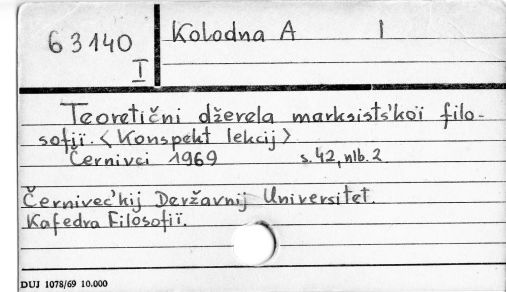 63140
I
Kolodna A I
Teoretični džerela marksists'koï filo-
sofiï. <Konspekt lekcij>
Černivci 1969 s. 42, nlb. 2
Černivec'kij Deržavnij Universitet.
Kafedra Filosofiï.
DUJ 1078/69 10.000